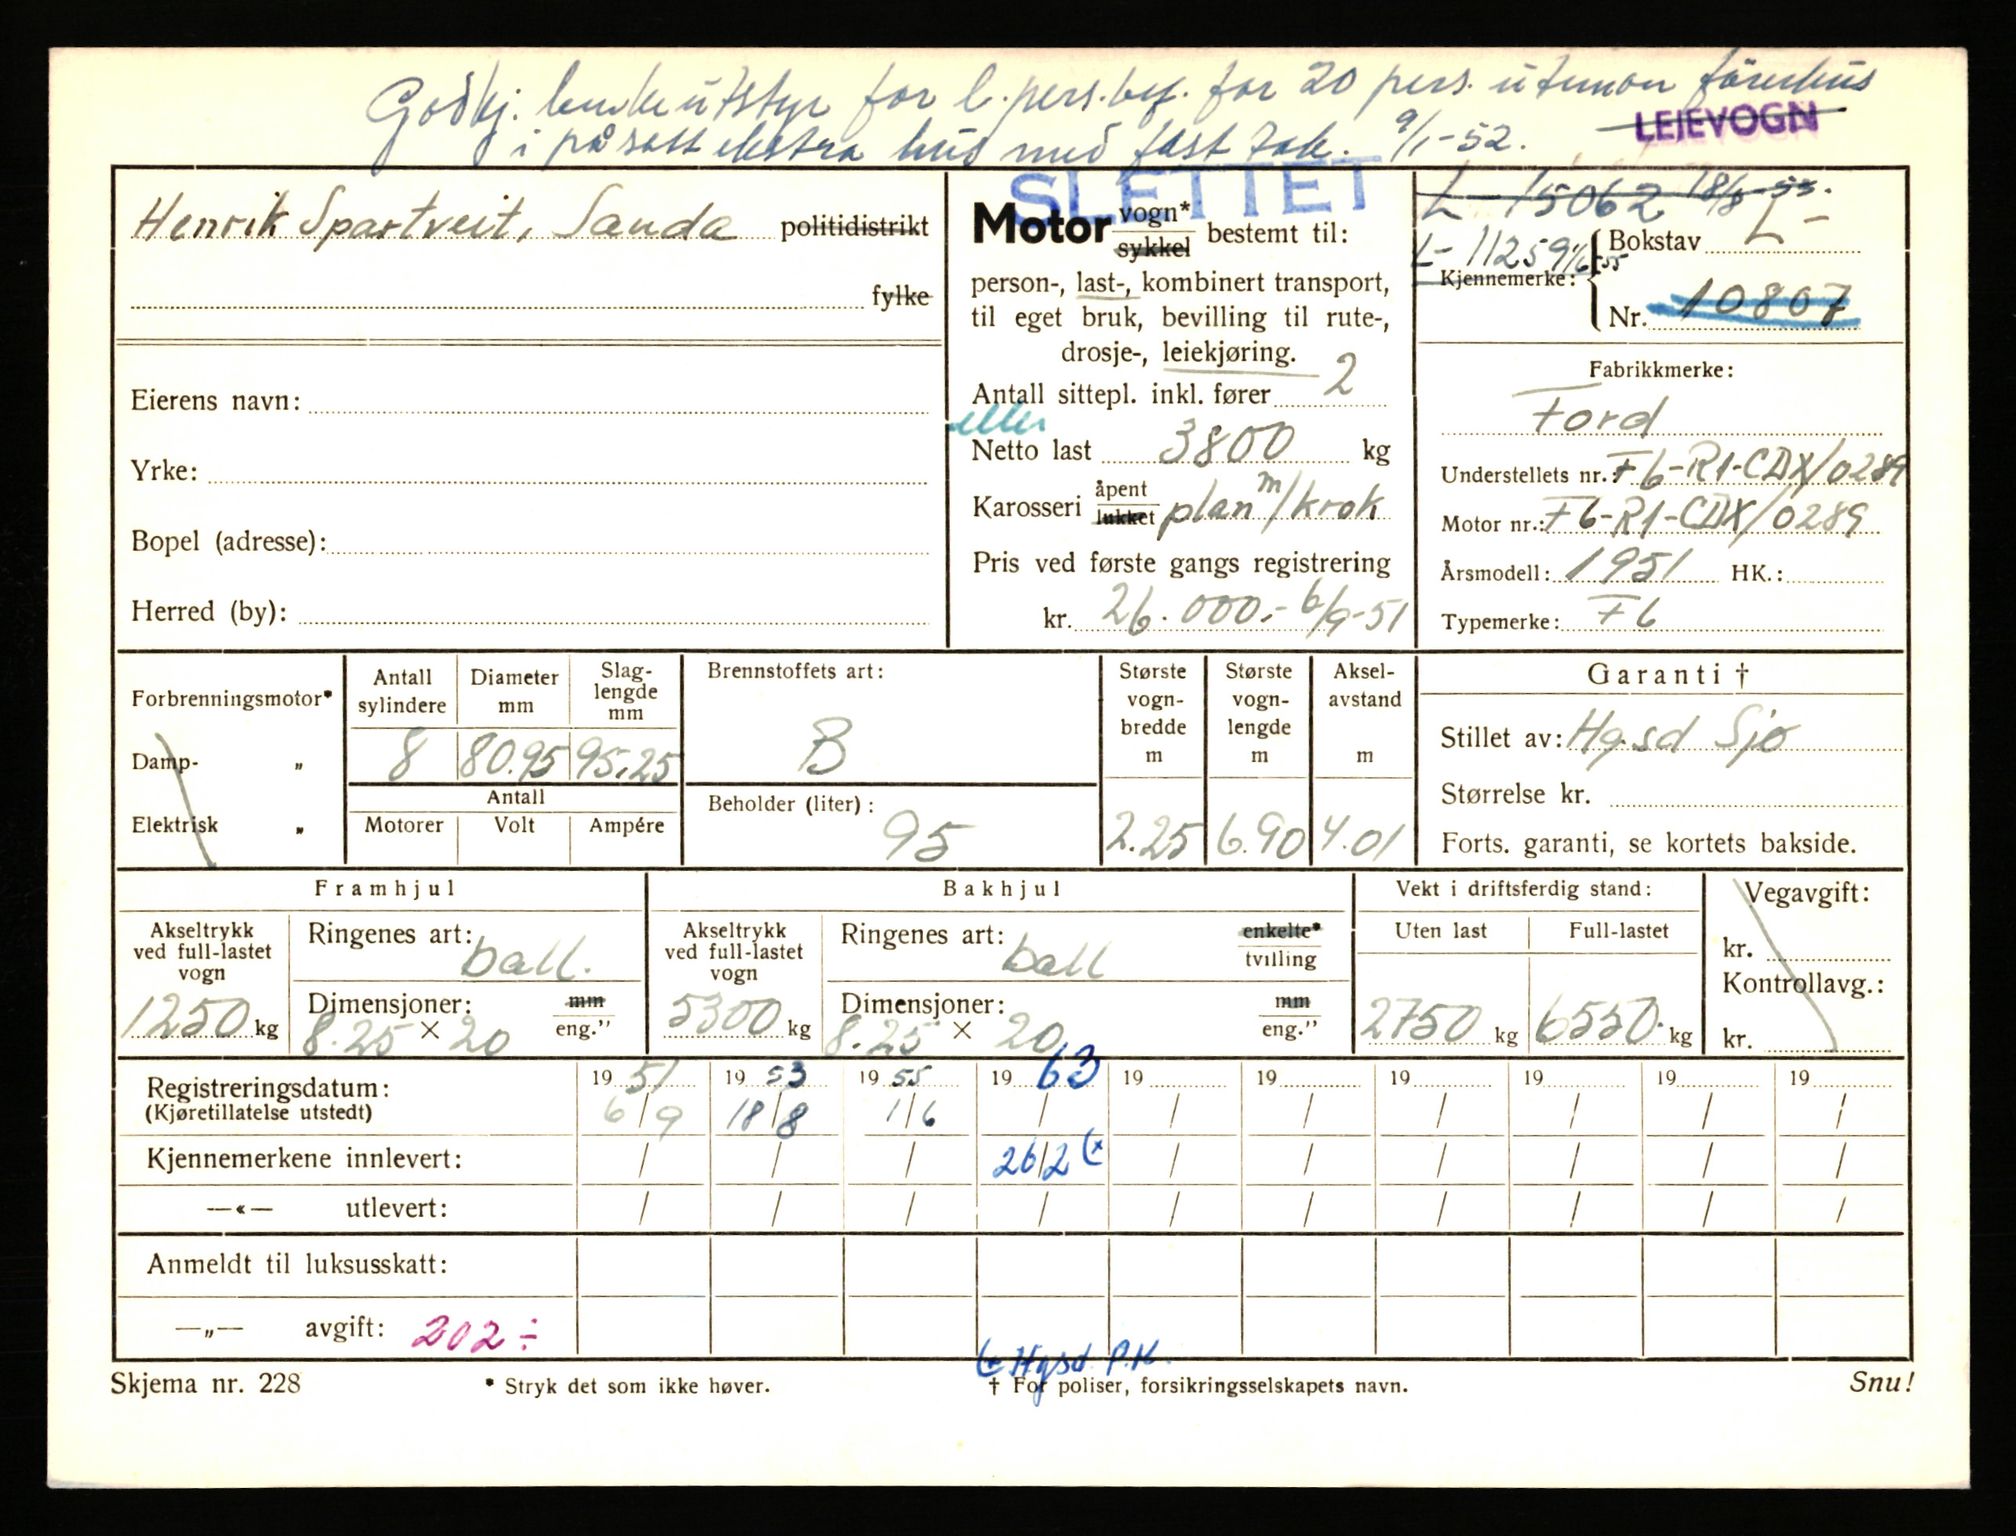 Godkj. benkeutstyr for l. pers. bef. for 20 pers. utenom førerhus
i påsatt ekstra hus med fast tak. 9/1-52.
LEIEVOGN
SLETTET
Henrik Spartveit, Sauda politidistrikt
fylke
Eierens navn:
Yrke:
Bopel (adresse):
Herred (by):
Motor vogn*
sykkel bestemt til:
person-, last-, kombinert transport,
til eget bruk, bevilling til rute-,
drosje-, leiekjøring.
Antall sittepl. inkl. fører 2
eller
Netto last 3800 kg
Karosseri åpent
lukket plan m/krok
Pris ved første gangs registrering
kr. 26.000.- 6/9-51
L-15062 18/8-53.
L-11259 1/6-55
Kjennemerke: Bokstav L-
Nr. 10807
Fabrikkmerke:
Ford
Understellets nr.: F6-R1-CDX/0289
Motor nr.: F6-R1-CDX/0289
Årsmodell: 1951 HK.:
Typemerke: F6
Forbrenningsmotor*
Damp- „
Elektrisk „
Antall sylindere
Diameter mm
Slag-lengde mm
8 80.95 95.25
Antall
Motorer Volt Ampére
Brennstoffets art:
B
Beholder (liter):
95
Største vogn-bredde m
2.25
Største vogn-lengde m
6.90
Aksel-avstand m
4.01
Garanti †
Stillet av: Hgsd Sjø
Størrelse kr.
Forts. garanti, se kortets bakside.
Framhjul
Akseltrykk
ved full-lastet
vogn
1250 kg
Ringenes art: ball.
Dimensjoner: mm
8.25 × 20 eng.”
Bakhjul
Akseltrykk
ved full-lastet
vogn
5300 kg
Ringenes art: ball enkelte*
tvilling
Dimensjoner: mm
8.25 × 20 eng.”
Vekt i driftsferdig stand:
Uten last Full-lastet
2750 kg 6550 kg
Vegavgift:
kr.
Kontrollavg.:
kr.
Registreringsdatum: 19 51 19 53 19 55 19 63 19 19 19 19 19 19
(Kjøretillatelse utstedt) 6/9 18/8 1/6 / / / / / / /
Kjennemerkene innlevert: / / / 26/2 (* / / / / / /
—«— utlevert: / / / / / / / / / /
Anmeldt til luksusskatt:
—„— avgift: 202 ÷
(* Hgsd. P.K.
Skjema nr. 228 * Stryk det som ikke høver. † For poliser, forsikringsselskapets navn. Snu!